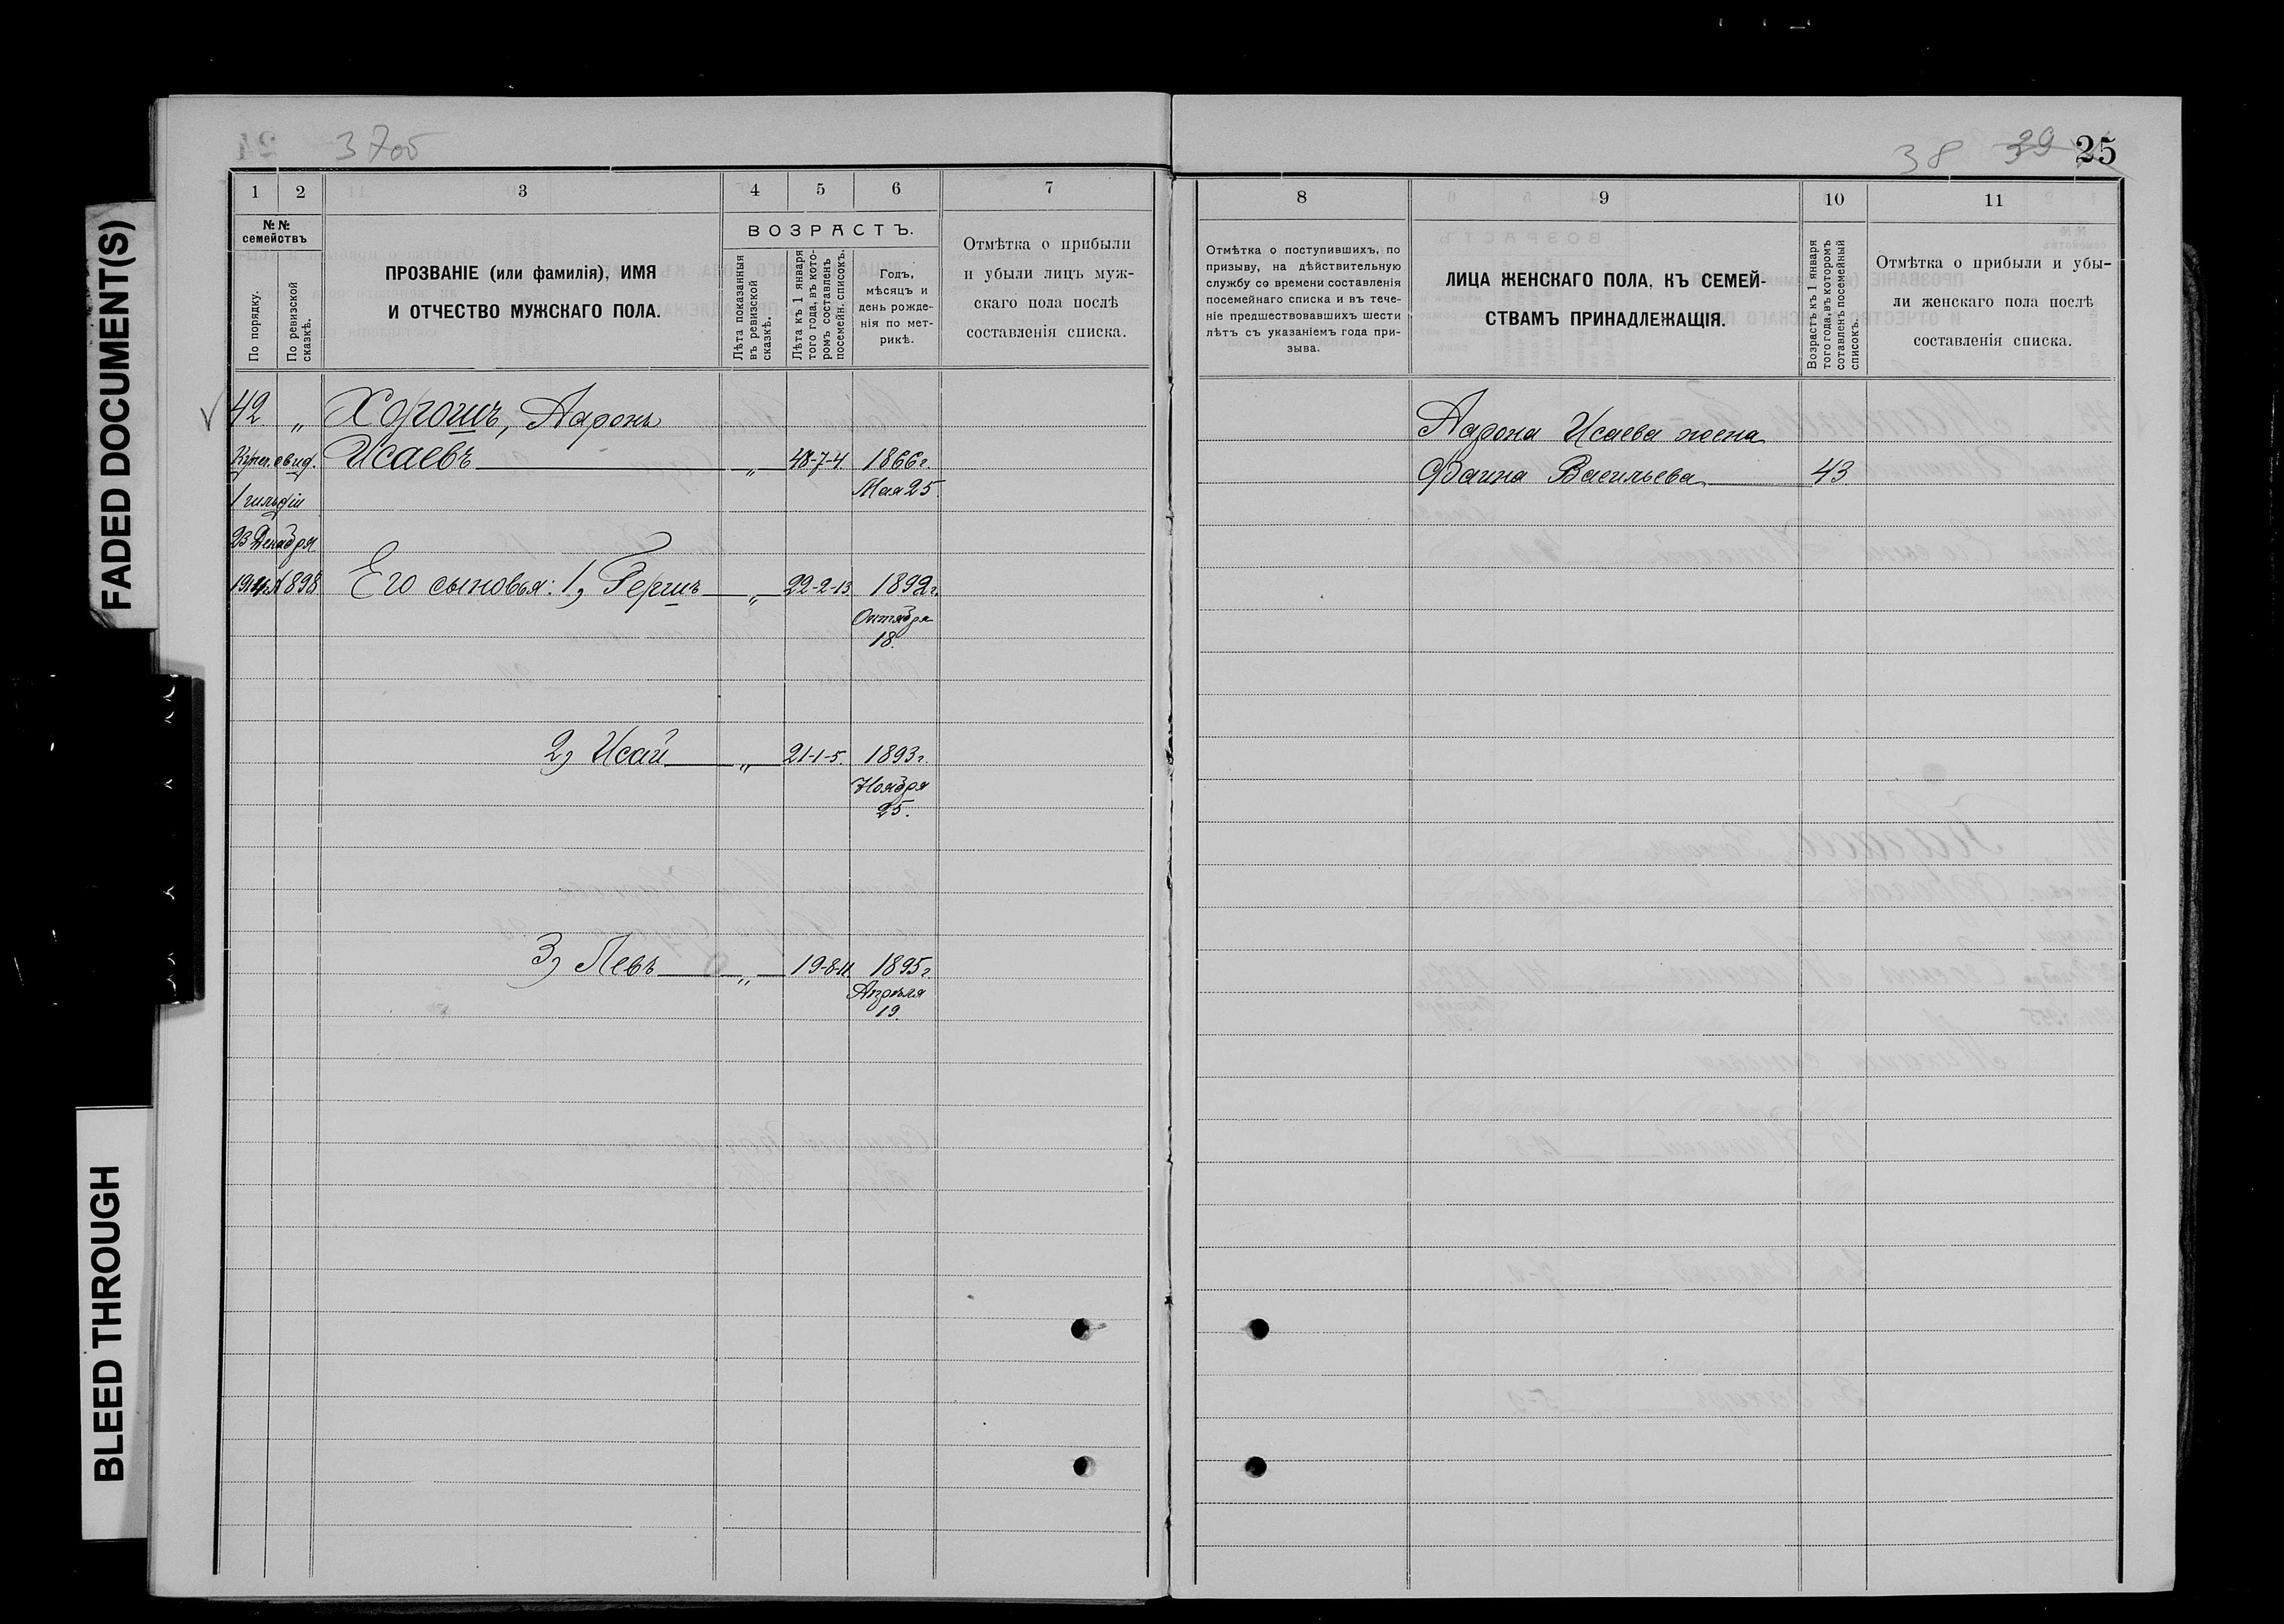 FADED DOCUMENT(S)
BLEED THROUGH
37об
38 39 25
1 2 3 4 5 6 7
№№ семействъ
По порядку.
По ревизской сказкѣ.
ПРОЗВАНІЕ (или фамилія), ИМЯ
И ОТЧЕСТВО МУЖСКАГО ПОЛА.
ВОЗРАСТЪ.
Лѣта показанныя
въ ревизской
сказкѣ.
Лѣта къ 1 января
того года, въ кото-
ромъ составленъ
посемейн. списокъ.
Годъ,
мѣсяцъ и
день рожде-
нія по мет-
рикѣ.
Отмѣтка о прибыли
и убыли лицъ муж-
скаго пола послѣ
составленія списка.
42 „ Хорошъ, Ааронъ
Купеч. свид. Исаевъ „ 48-7-4. 1866г.
1 гильдіи Мая 25.
23 Декабря
1914г. № 898 Его сыновья: 1, Гершъ „ 22-2-13. 1892г.
Октября
18.
2, Исай „ 21-1-5. 1893г.
Ноября
25.
3, Левъ „ 19-8-11. 1895г.
Апрѣля
19.
8 9 10 11
Отмѣтка о поступившихъ, по
призыву, на дѣйствительную
службу со времени составленія
посемейнаго списка и въ тече-
ніе предшествовавшихъ шести
лѣтъ съ указаніемъ года при-
зыва.
ЛИЦА ЖЕНСКАГО ПОЛА, КЪ СЕМЕЙ-
СТВАМЪ ПРИНАДЛЕЖАЩІЯ.
Возрастъ къ 1 января
того года, въ которомъ
составленъ посемейный
списокъ.
Отмѣтка о прибыли и убы-
ли женскаго пола послѣ
составленія списка.
Аарона Исаева жена
Фаина Васильева 43